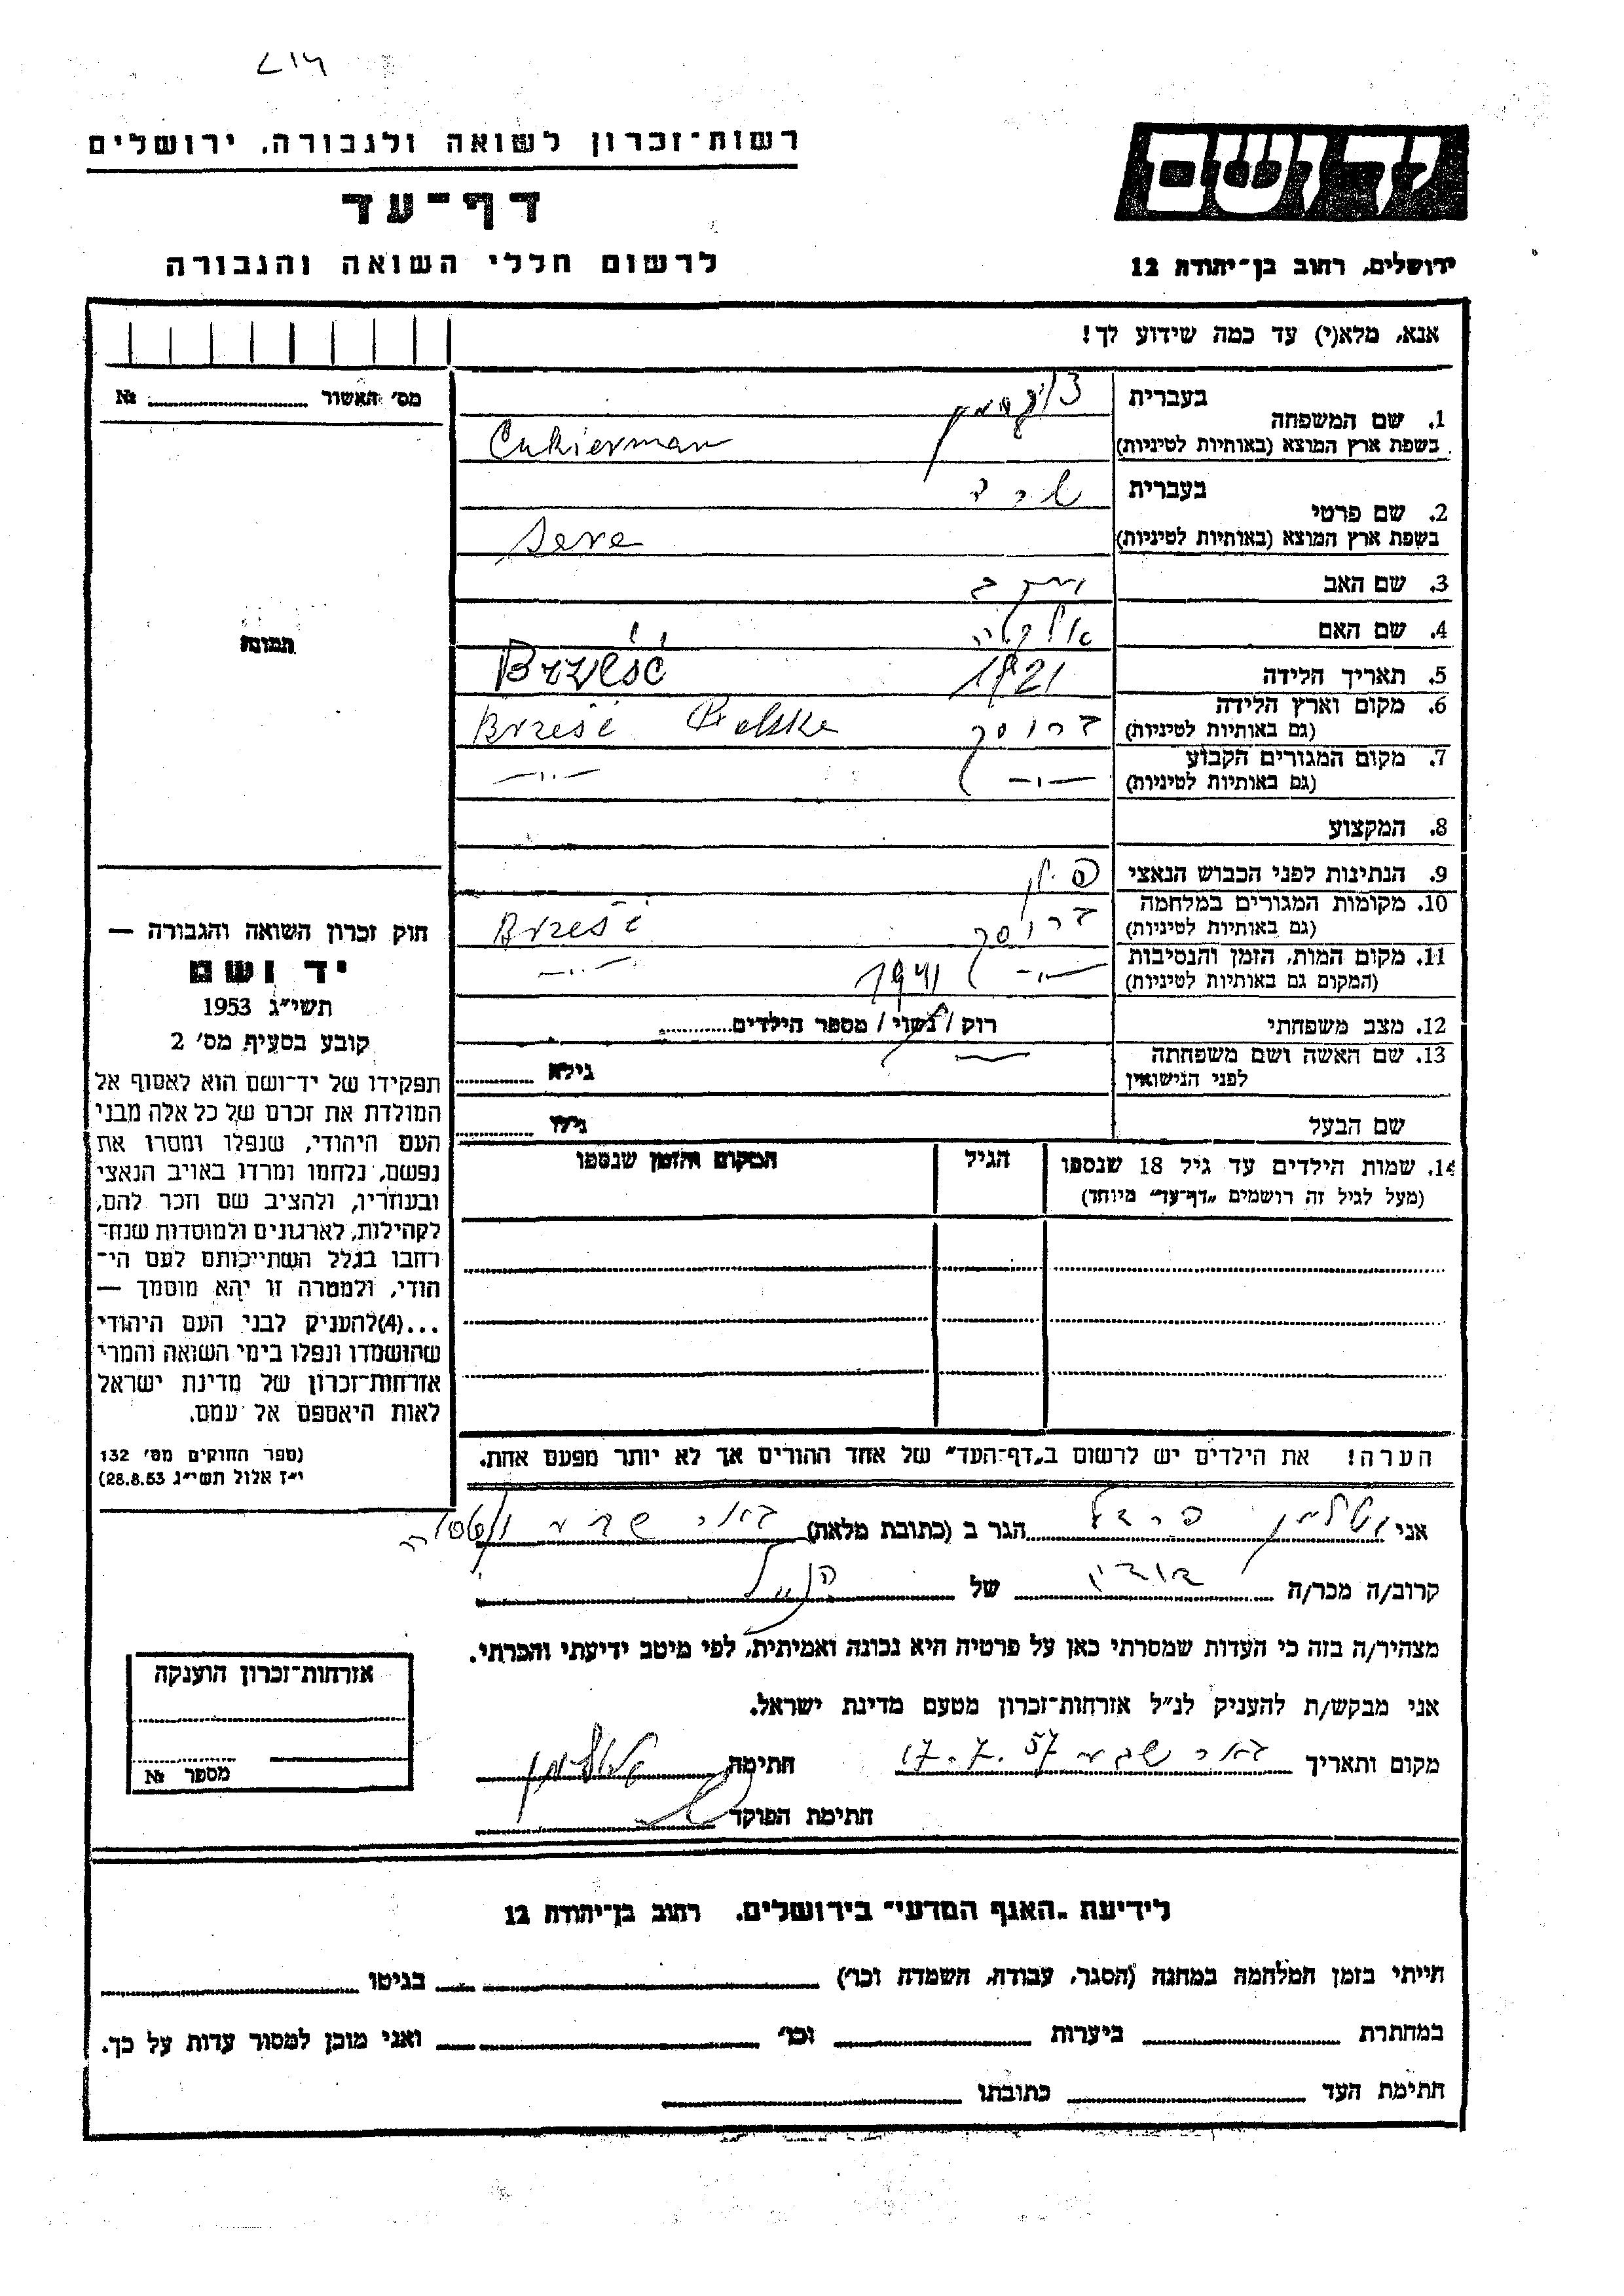 רשות־זכרון לשואה ולגבורה, ירושלים
דף־עד
לרשום חללי השואה והגבורה
יד ושם
ירושלים, רחוב בן־יהודה 12
אנא, מלא(י) עד כמה שידוע לך!
מס׳ האשור № ........
1. שם המשפחה בעברית צוקרמן
בשפת ארץ המוצא (באותיות לטיניות) Cukierman
2. שם פרטי בעברית שרה
בשפת ארץ המוצא (באותיות לטיניות) Sere
3. שם האב
4. שם האם
5. תאריך הלידה 1921 Brześć
6. מקום וארץ הלידה (גם באותיות לטיניות) Brześć Polska
7. מקום המגורים הקבוע (גם באותיות לטיניות) —״— —״—
8. המקצוע
9. הנתינות לפני הכבוש הנאצי פולין
10. מקומות המגורים במלחמה (גם באותיות לטיניות) Brześć
11. מקום המות, הזמן והנסיבות (המקום גם באותיות לטיניות) —״— 1941 —״—
12. מצב משפחתי רוק / נשוי / מספר הילדים........
13. שם האשה ושם משפחתה לפני הנישואין גילא ........
שם הבעל גילו ........
14. שמות הילדים עד גיל 18 שנספו (מעל לגיל זה רושמים „דף־עד״ מיוחד) הגיל המקום והזמן שנספו
הערה! את הילדים יש לרשום ב„דף־העד״ של אחד ההורים אך לא יותר מפעם אחת.
תמונה
חוק זכרון השואה והגבורה —
יד ושם
תשי״ג 1953
קובע בסעיף מס׳ 2
תפקידו של יד־ושם הוא לאסוף אל
המולדת את זכרם של כל אלה מבני
העם היהודי, שנפלו ומסרו את
נפשם, נלחמו ומרדו באויב הנאצי
ובעוזריו, ולהציב שם וזכר להם,
לקהילות, לארגונים ולמוסדות שנח־
רחבו בגלל השתייכותם לעם הי־
הודי, ולמטרה זו יהא מוסמך —
...(4)להעניק לבני העם היהודי
שהושמדו ונפלו בימי השואה והמרי
אזרחות־זכרון של מדינת ישראל
לאות היאספם אל עמם.
(ספר החוקים מס׳ 132
י״ז אלול תשי״ג 28.8.53)
אני הגר ב (כתובת מלאה) באר שבע
קרוב/ה מכר/ה של הנ״ל
מצהיר/ה בזה כי העדות שמסרתי כאן על פרטיה היא נכונה ואמיתית, לפי מיטב ידיעתי והכרתי.
אני מבקש/ת להעניק לנ״ל אזרחות־זכרון מטעם מדינת ישראל.
מקום ותאריך באר שבע 17.7.57 חתימה
חתימת הפוקד
אזרחות־זכרון הוענקה
מספר №
לידיעת „האגף המדעי״ בירושלים, רחוב בן־יהודה 12
הייתי בזמן המלחמה במחנה (הסגר, עבודה, השמדה וכו׳) ........ בגיטו ........
במחתרת ........ ביערות ........ וכו׳ ........ ואני מוכן למסור עדות על כך.
חתימת העד ........ כתובתו ........